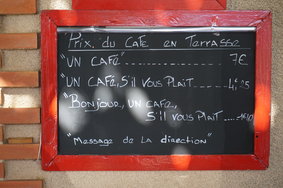 Prix du Café en Terrasse
"UN CAFÉ" 7€
"UN CAFÉ, S'il VOUS PlaiT" 4,25
"Bonjour, UN CAFÉ,
S'il VOUS PlaiT" 1,40
"Message de la direction"